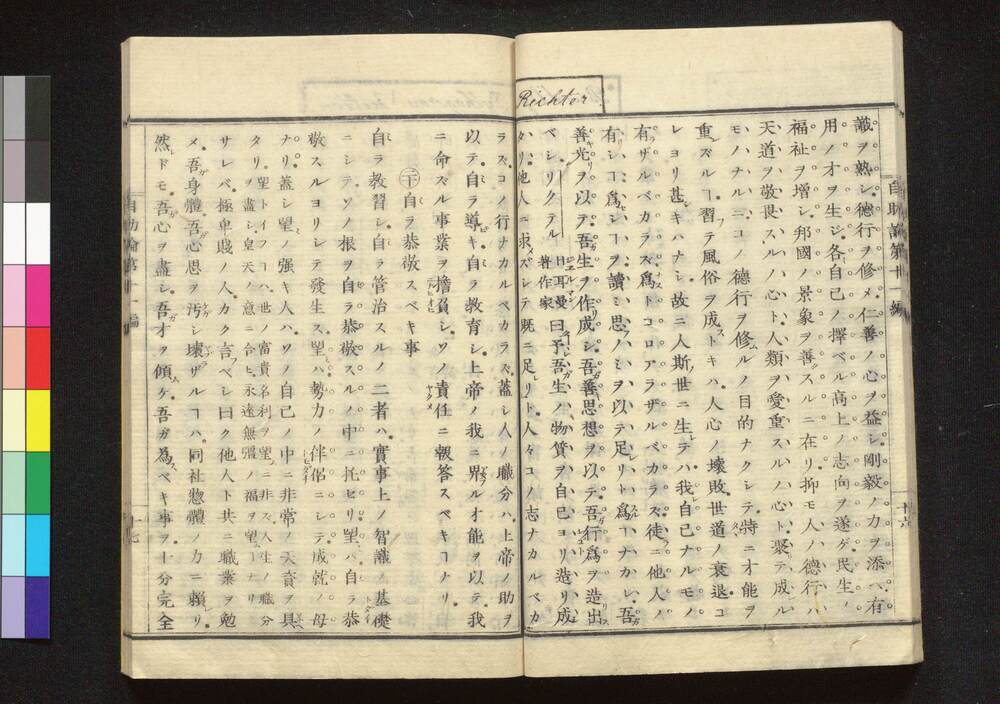 Richter
識ヲ熟シ德行ヲ修メ仁善ノ心ヲ益シ剛毅ノ力ヲ添ハ有
用ノ才ヲ生ジ各自己ノ擇ベル高上ノ志向ヲ遂ゲ民生ノ
福祉ヲ增シ邦國ノ景象ヲ善スルニ在リ抑モ人ノ德行ハ
天道ヲ敬畏スルノ心ト人類ヲ愛重スルノ心ト聚テ成ル
モノハナルニコノ德行ヲ修ルノ目的ナクシテ特ニ才能ヲ
重ズルヿ習テ風俗ヲ成ストキハ人心ノ壞敗世道ノ衰退コ
レヨリ甚シキハナシ故ニ人斯世ニ生レテハ我自己ナルモノ
有ザルベカラズ爲ストコロアラザルベカラズ徒ニ他人ノ
有リシヿ爲シヿヲ讀ミ思フノミヲ以テ足レリト爲スヿナカレ吾
善光ヲ以テ吾生ヲ作成シ吾善思想ヲ以テ吾行爲ヲ造出ス
ベシリクテル 日耳曼著作家 曰ク予吾生ハ物質ヲ自己ヨリ造リ成セ
リ他人ニ求メズシテ既ニ足レリト人々コノ志ナカルベカ
ラズコノ行ナカルベカラズ蓋シ人ノ職分ハ上帝ノ助ヲ
以テ自ラ導キ自ラ教育シ上帝ノ我ニ畀フル才能ヲ以テ我
ニ命ズル事業ヲ擔負シソノ責任ニ報答スベキヿナリ
二十 自ラ恭敬スベキ事
自ラ教習シ自ラ管治スルノ二者ハ實事上ノ智識ノ基礎
ニシテソノ根ヲ自ラ恭敬スルノ中ニ托セリ望ハ自ラ恭
敬スルヨリシテ發生ス望ハ勢力ノ伴侶ニシテ成就ノ母
ナリ蓋シ望ノ强キ人ハソノ自己ノ中ニ非常ノ天資ヲ具
タリ 望トイフヿハ世ノ富貴名利ヲ望ニ非ズ人生ノ職分ヲ盡シ皇天ノ意ニ合ヒ永遠無彊ノ福ヲ望ムヿナリ
サレバ極卑賤ノ人カク言フベシ曰ク他人ト共ニ職業ヲ勉
メ吾身體吾心思ヲ汚シ壞ザルヿハ同社惣體ノ力ニ賴レリ
然レドモ吾心ヲ盡シ吾才ヲ傾ケ吾ガ為スベキ事ヲ十分完全
自助論第十一編
十六
自助論第十一編
十七